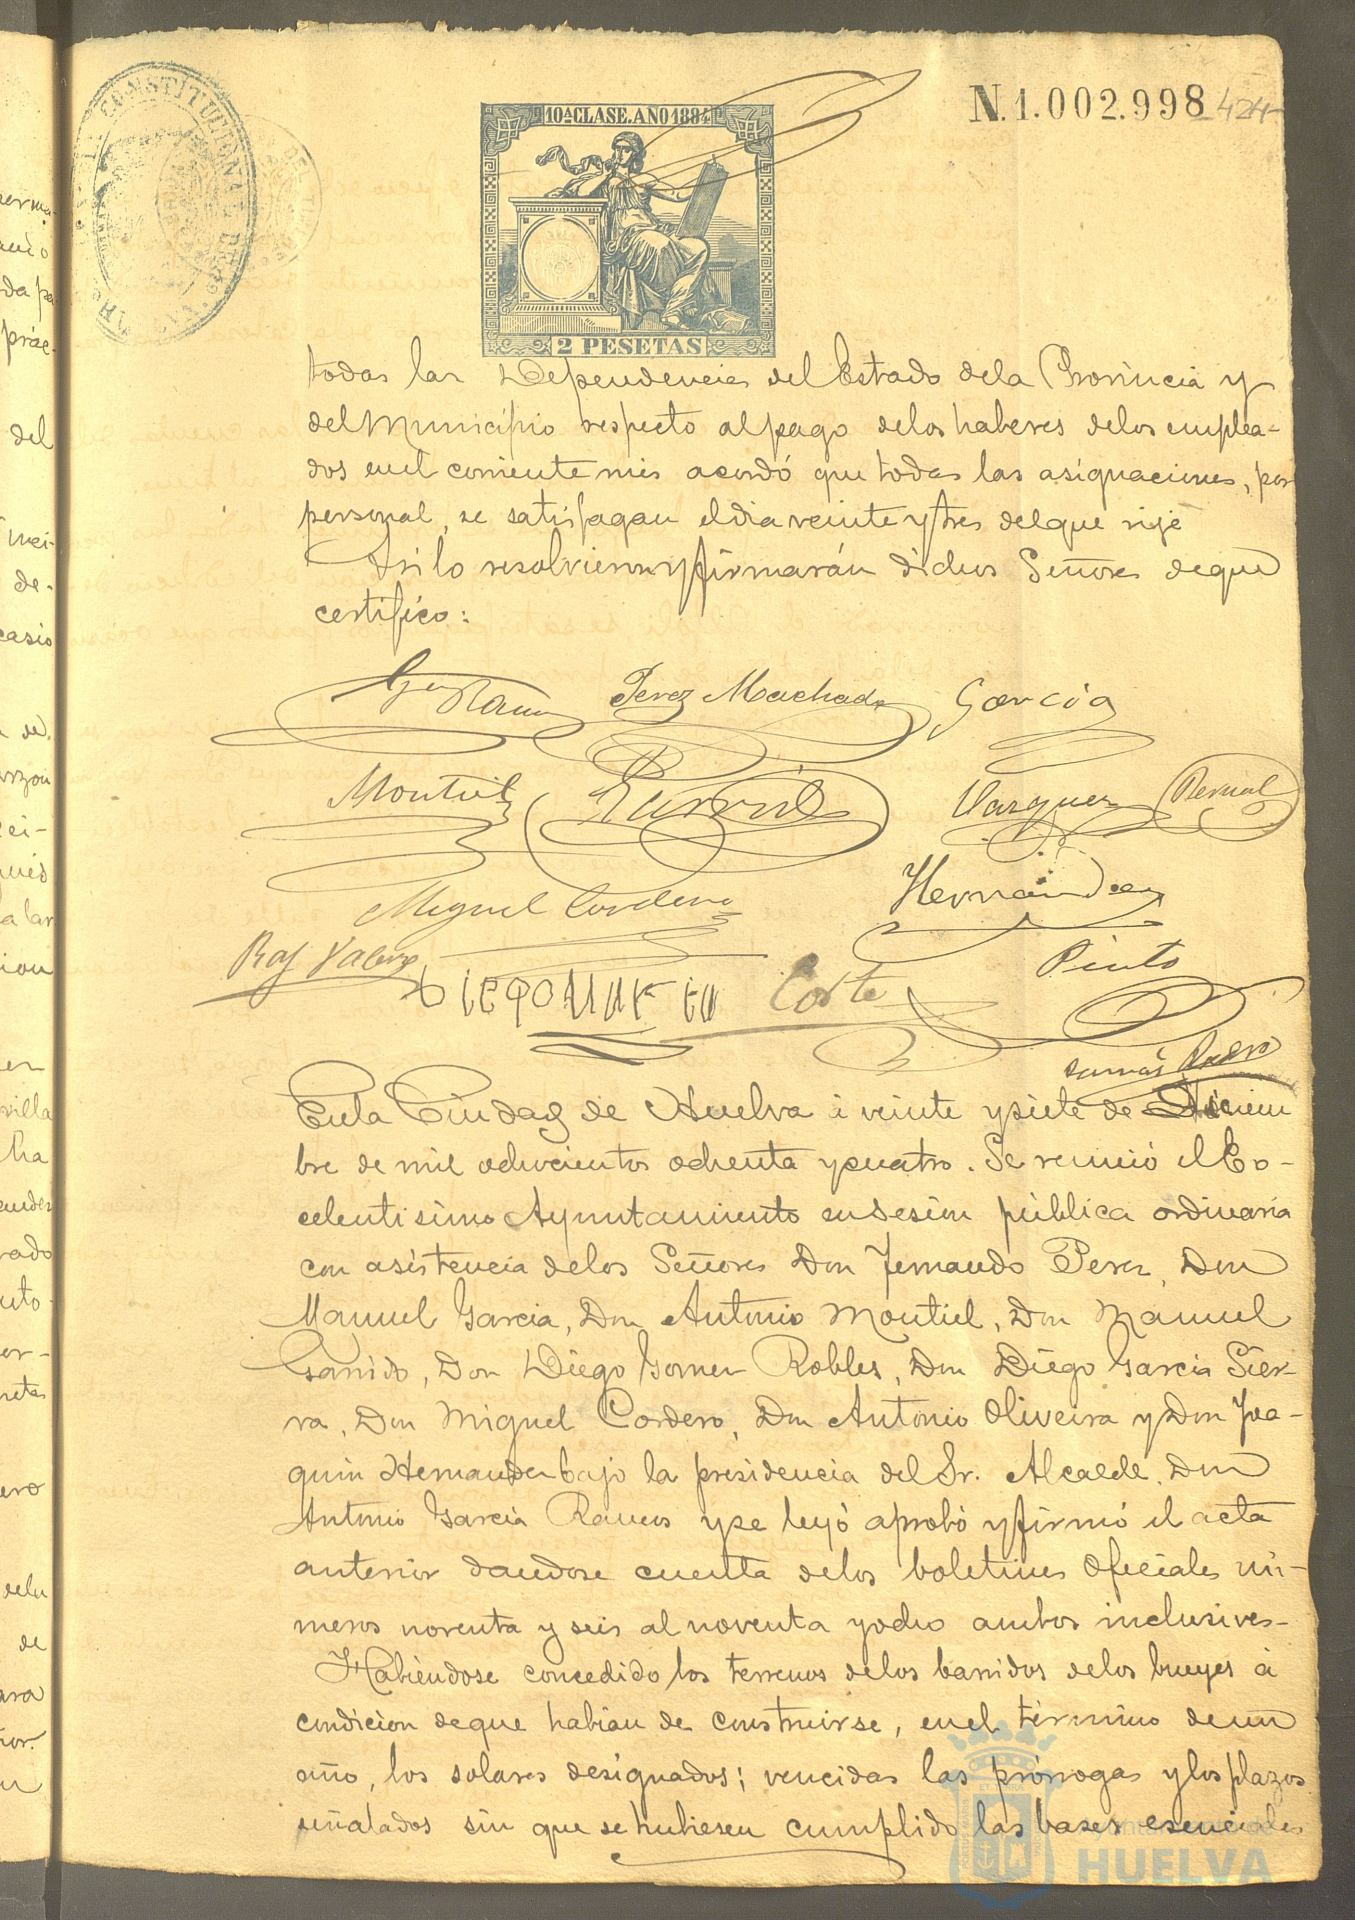 N.1.002.998
424
10ª CLASE. AÑO 1884
2 PESETAS
todas las Dependencias del Estado dela Provincia y
del Municipio respecto al pago delos haberes delos emplea-
dos en el corriente mes acordó que todas las asignaciones, por
personal, se satisfagan el dia veinte y tres del que rije
Asi lo resolvieron y firmarán dichos Señores de que
certifico:
Gª Ramos Perez Machado Garcia
Montiel Garrido Vazquez Bernal
Miguel Cordero Hernandez
Raf Valera Corte Pinto
En la Ciudad de Huelva á veinte y siete de Diciem
bre de mil ochocientos ochenta y cuatro. Se reunió el Ex-
celentisimo Ayuntamiento en sesion pública ordinaria
con asistencia delos Señores Don Fernando Perez, Don
Manuel Garcia, Don Antonio Montiel, Don Manuel
Garrido, Don Diego Gomez Robles, Don Diego Garcia Sier-
ra, Don Miguel Cordero, Don Antonio Oliveira y Don Joa-
quin Hernandez bajo la presidencia del Sr. Alcalde, Don
Antonio Garcia Ramos y se leyó aprobó y firmó el acta
anterior dandose cuenta delos boletines oficiales nú-
meros noventa y seis al noventa y ocho ambos inclusives-
Habiéndose concedido los terrenos delos barridos delos bueyes á
condicion de que habian de construirse, en el término de un
año, los solares designados; vencidas las prórrogas y los plazos
señalados sin que se hubiesen cumplido las bases esenciales
Ayuntamiento de
HUELVA